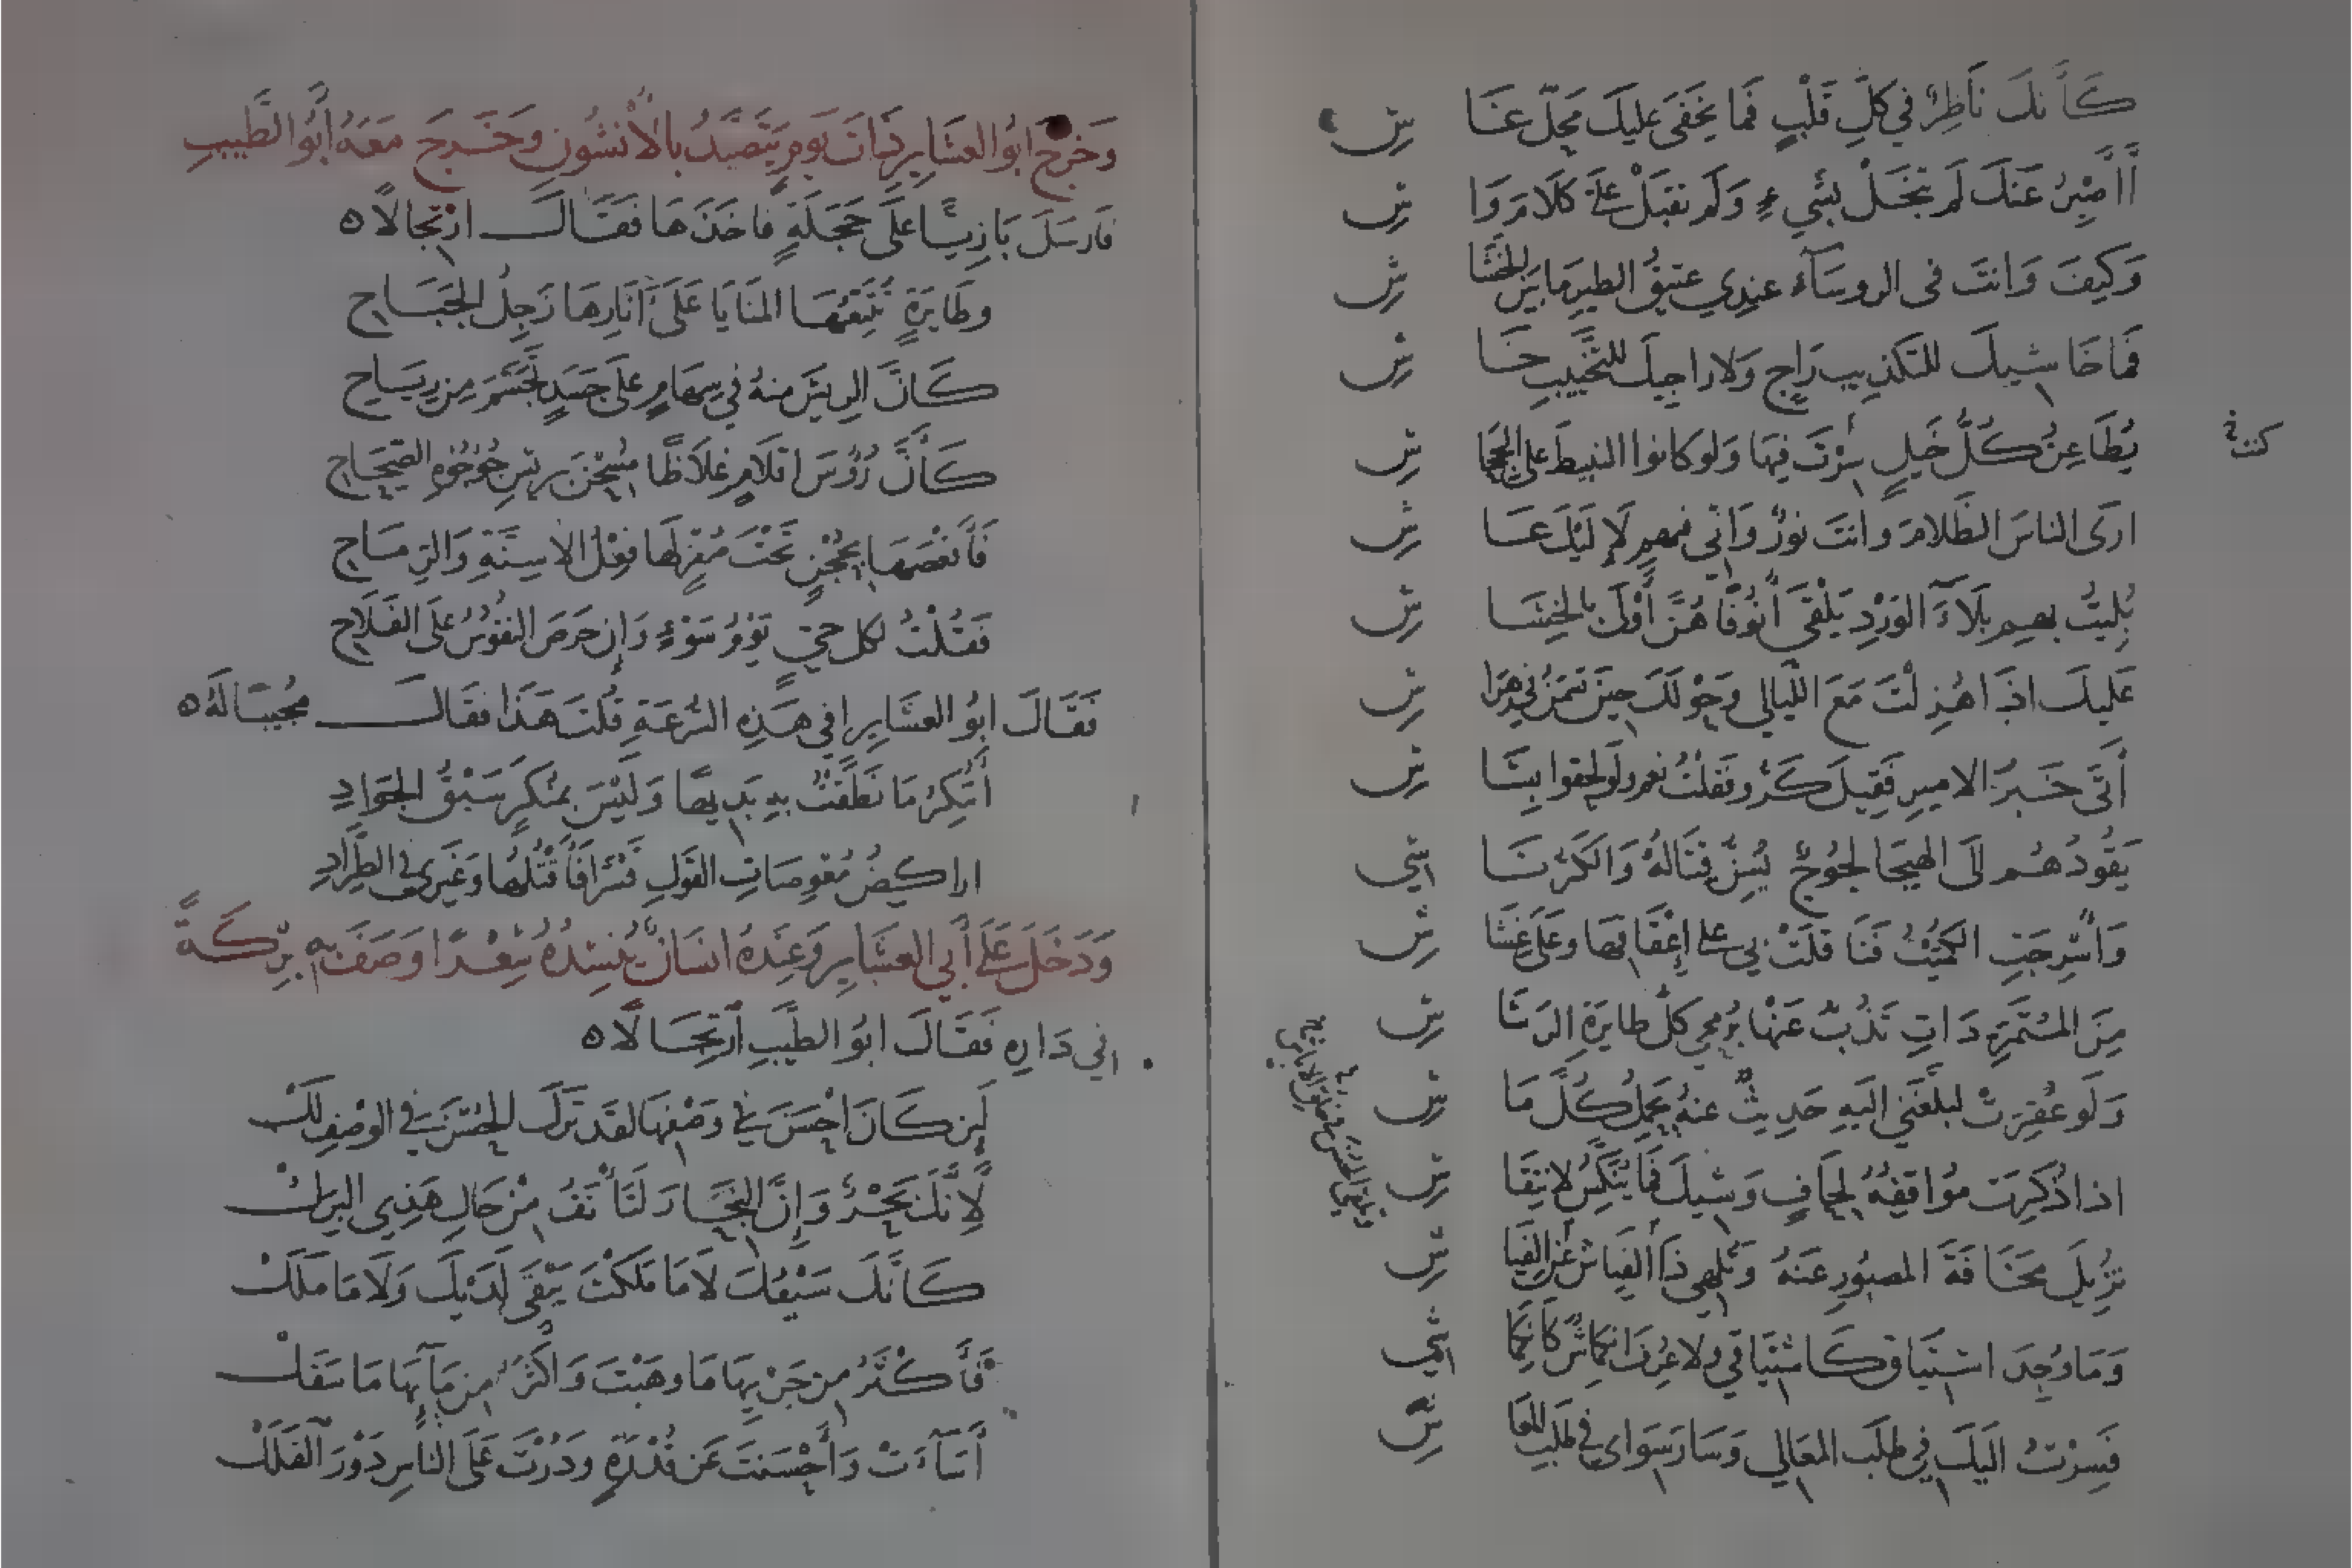 كَأَنكَ نَاظِرٌ في كلِّ قَلْبٍ فَما يَخفَى عَليكَ مَحلّ غَا شِ
أَأَصْبِرُ عَنكَ لَم تبْخَلْ بشَيءٍ وَلَم تقبَلْ عَلَىَّ كَلَامَ وَا شِ
وَكيفَ وَانتَ في الروسَآء عندِي عتيقُ الطيرِ مَا بَيْنَ الخشَا شِ
فَما خَاشيكَ للتكذِيبِ رَاجٍ وَلا راجِيكَ للتّخْييبِ خَا شِ
يُطَاعِنُ كُلُّ خَيلٍ سِرْتَ فيهَا وَلو كانوا النبيطَ على الجحَا شِ
كنتَ خ
ارَى الناسَ الظّلامَ وانتَ نورٌ وَانّي فيهمِ لَإِلَيْكَ عَا شِ
بُليتُ بهم بلَآءَ الوَرْدِ يَلْقَى أُنُوفًا هُنَّ أَوْلَى بالخِشَا شِ
عَليكَ اذَا هُزِلْتَ مَعَ اللّيالي وَحَولَكَ حينَ تسْمَنُ في هِرَا شِ
أَتَى خَبَرُ الاميرِ فَقِيلَ كَرُّوا فَقلْتُ نعم ولو لحِقوا بِشَا شِ
يَقُودُهُم الَى الهيجَا لجُوجٌ يُسِنُّ قِتَالهُ وَالكَرّ نَا شي
وَأُسْرِجَتِ الكُمَيْتُ فَنَاقلَتْ بي على إعْقَاقهَا وعَلى غِشَا شِ
مِنَ المُتَمرِّدَاتِ تَذُبُّ عَنْهَا بُرمحي كلّ طايرَةِ الرشَا شِ
وَلَو عُقِرَتْ لبلّغَني اليهِ حَدِيثٌ عنهُ يَحمِلُ كُلَّ مَا شِ
اذا ذُكِرَت مَوَاقفِهُ لِحَافٍ وَشيكَ فَما يُنَكِّسُ لانتِقَا شِ
تزيلُ مَخَافَةَ المصبُورِ عَنهُ وَتُلهي ذَا الفيَاشِ عَنِ الفِيَا شِ
وَمَا وُجِدَ اشتيَاق كَاشتيَاقي ولا عُرِفَ انكمَاشٌ كَانكِمَا شي
فَسِرْتُ اليكَ في طلَبِ المعَالي وَسَارَ سِوَاي في طَلَبِ المعَا شِ
وَخرَجَ ابُو العشَايرِ ذَاتَ يَومٍ يَتَصَيَّدُ بالأنشُونِ وخَرجَ مَعَهُ أبُو الطّيبِ
فَارسَلَ بَازِيًا عَلَى حَجَلَةٍ فَاخَذَهَا فقَالَ ارْتجالًا ه
وطَايرَةٍ تَتَبّعُهَا المنَايَا عَلَى آثَارِهَا زَجِلُ الجَنَاحِ
كَانَّ الريشَ منهُ في سِهَامٍ على جسَدٍ تجَسّمَ مِن رِيَاحِ
كَأَنَّ رُؤسَ اقلَامٍ غلَاظًا مُسِحْنَ برِيشِ جُؤجُؤهِ الصِحَاحِ
فَأَقْعَصَهَا بحُجْنٍ تَحْتَ صُفْرٍ لَهَا فِعْلُ الاسِنَّةِ وَالرِمَاحِ
فَقُلْتُ لكل حَيٍّ يَوْمُ سَوْءٍ وَإن حَرصَ النفُوسُ عَلَى الفَلَاحِ
فَقَالَ ابُو العشَايرِ افي هَذِهِ السُّرعَةِ قُلتَ هَذَا فقَالَ مُجيبًا لَهُ ه
أَتُنكِرُ مَا نَطَقتُ بهِ بَديهًا وَلَيْسَ بمُنكَرٍ سَبْقُ الجَوَادِ
اراكِضُ مُعْوِصَاتِ القَولِ قَسْرًا فَأَقْتُلُها وغَيري في الطِّرَادِ
وَدَخَلَ عَلَى أَبي العشَايرِ وَعِندَهُ انسَانٌ يُنشِدُهُ شِعْرًا وَصَفَ بهِ بِرْكَةً
في دَارِهِ فَقَالَ ابُو الطَّيبِ أرتجَالًا ه
لَئِن كَانَ احْسَنَ في وَصْفِهَا لقد تَرَكَ الحُسْنَ في الوصْفِ لَكْ
لِأنّكَ بَحْرٌ وَإنَّ البِحَارَ لتَأنَفُ مِنْ حَالِ هَذِي البِرَكْ
كَأنّكَ سَيْفُكَ لَا مَا مَلَكْتَ يَبْقَى لَدَيكَ وَلَا مَا مَلَكْ
فَأَكْثَرُ من جَرْيهَا مَا وهَبْتَ وَاكثَرُ من مَآئِهَا مَا سَفَكْ
أَسَأتَ وَأَحْسَنتَ عَن قُدْرَةٍ ودُرْتَ عَلَى الناسِ دَوْرَ الفَلَكْ